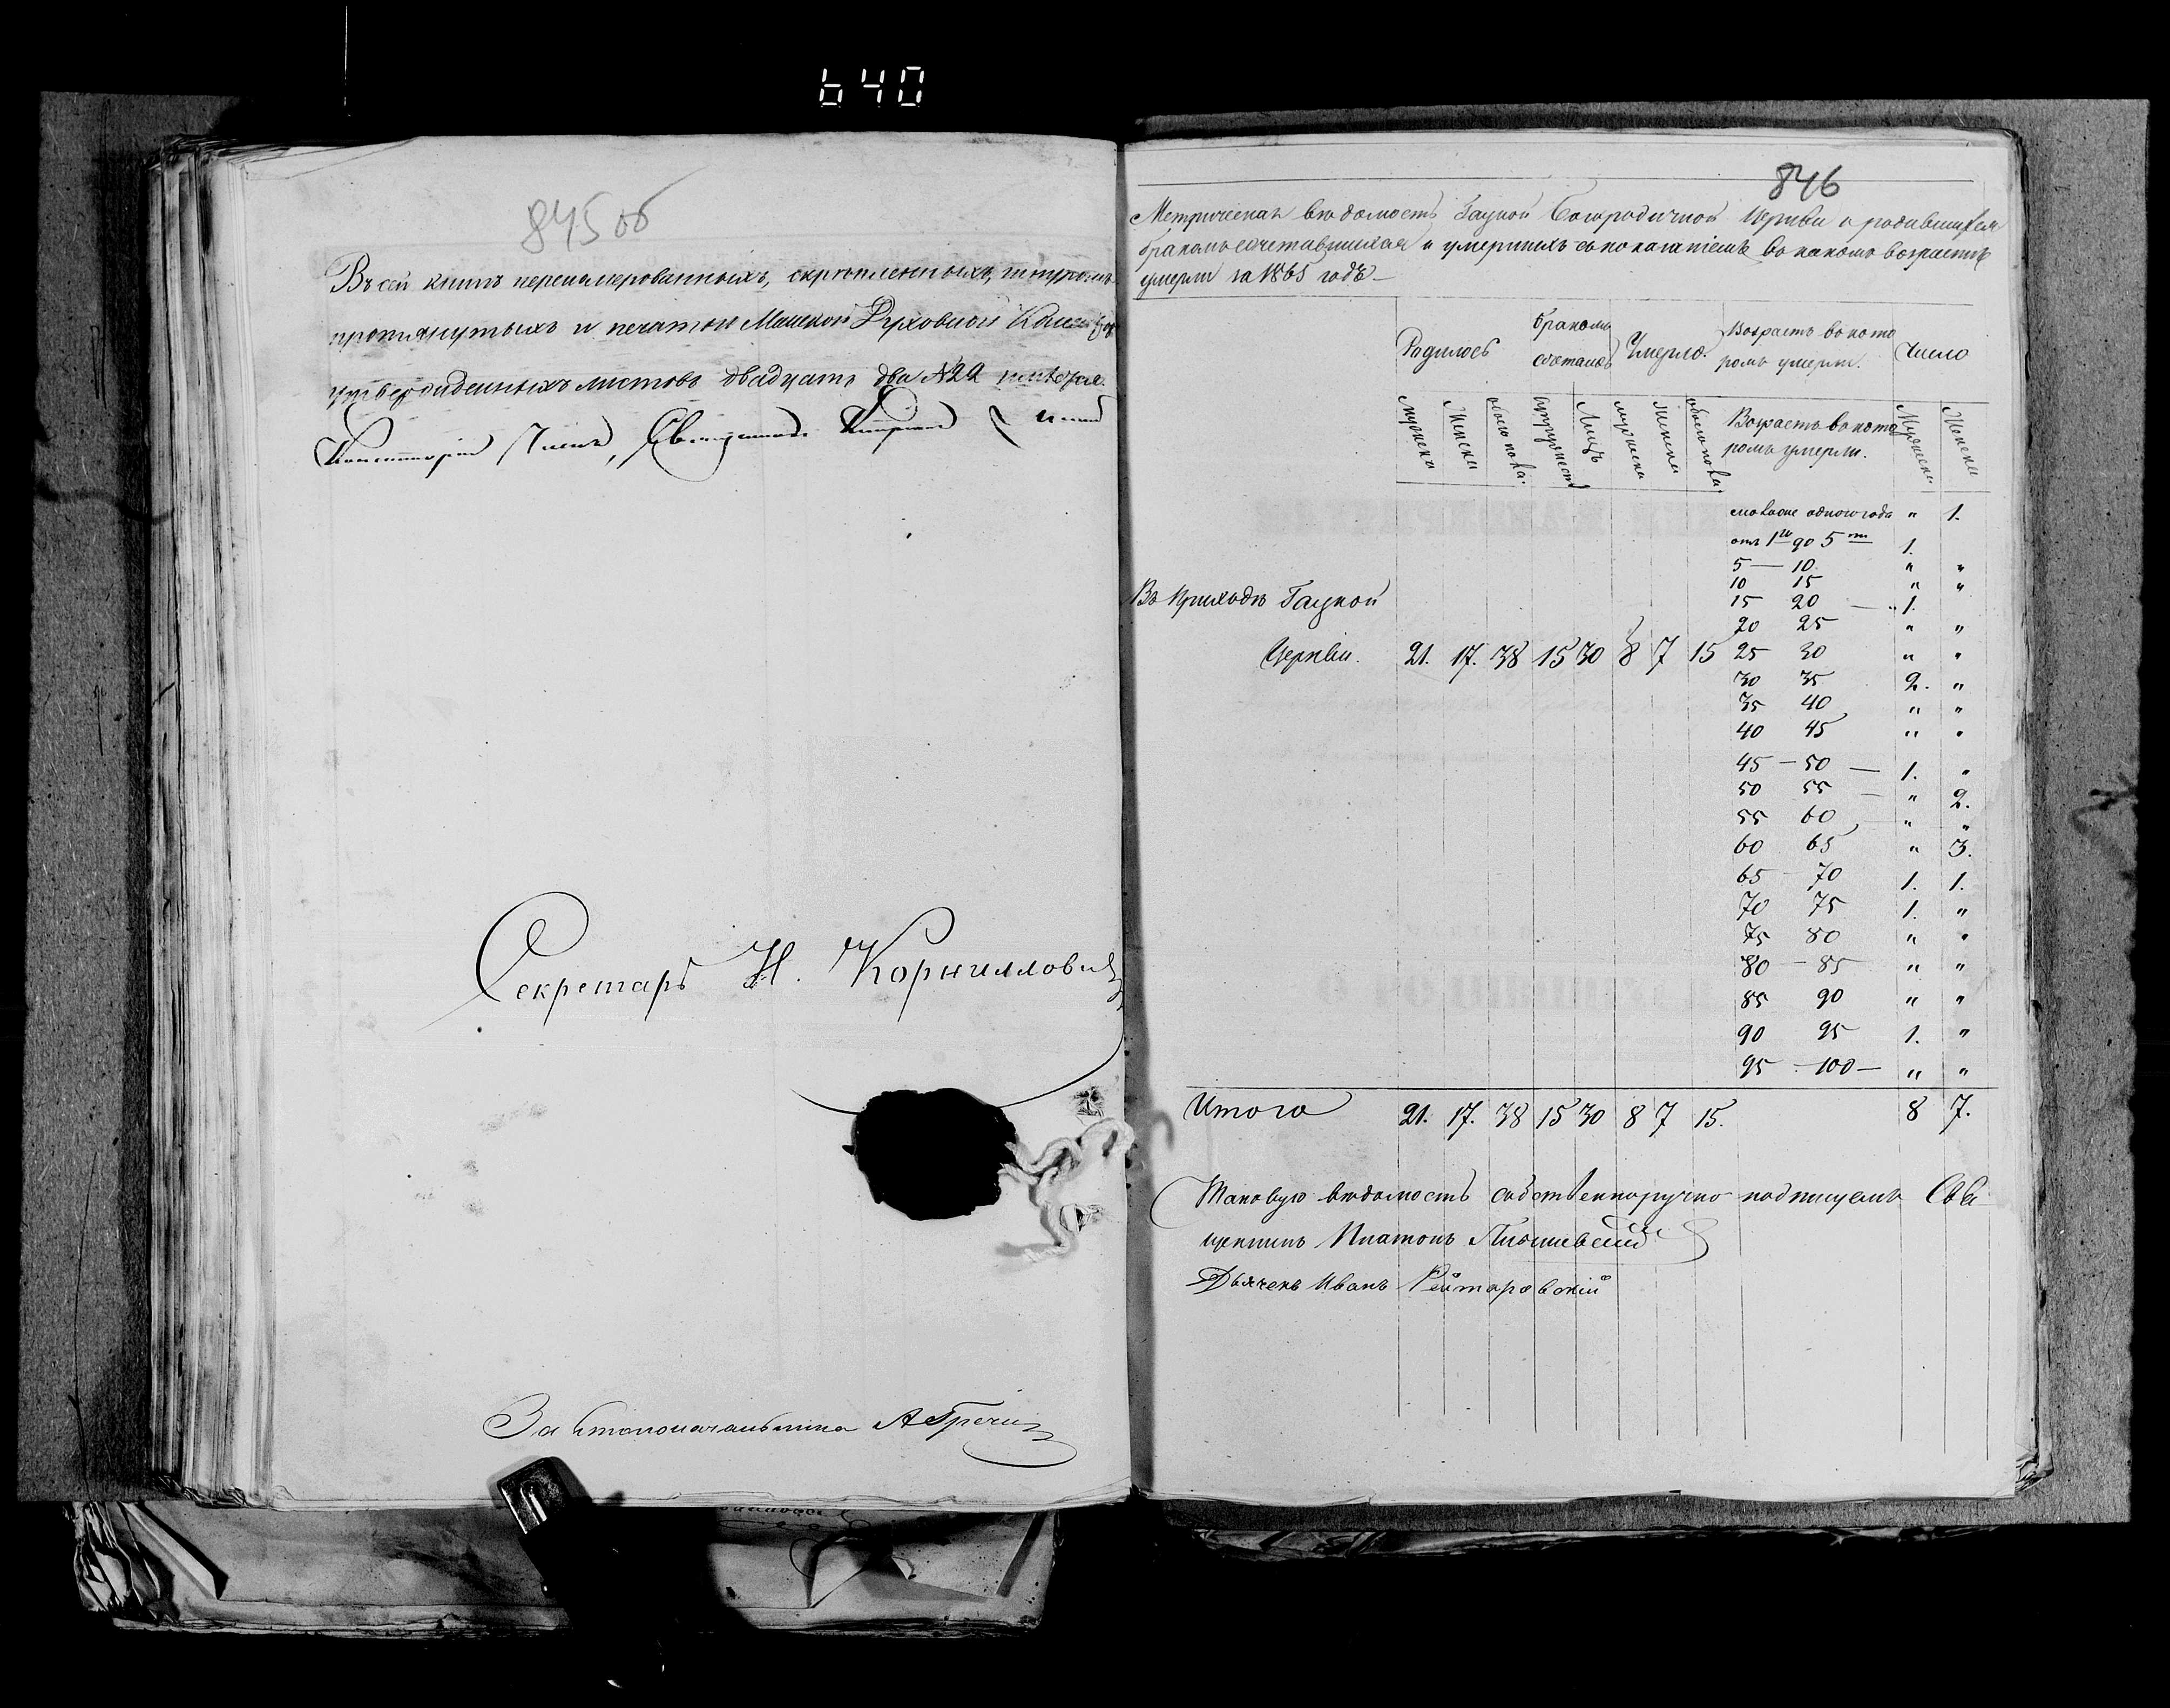 640
845 об
Въ сей книгѣ перенумерованныхъ, скрѣпленныхъ, шнуромъ
протянутыхъ и печатью Минской Духовной
утвержденныхъ листовъ двадцать два №22
Консисторіи Членъ, Священникъ
Секретарь Н. Корниллович
За столоначальника А Гречи
846
Метрическая вѣдомость Гацкой Богородичной Церкви о родившихся
бракомъ сочетавшихся и умершихъ съ показаніемъ въ какомъ возрастѣ
умерли за 1865 годъ
Родилось бракомъ сочеталось Умерло. Возрастъ въ кото ромъ умерли. Число
Мужеска Женска обоего пола. супружеств Лицъ мужеска Женска обоего пола Возрастъ въ кото ромъ умерли. Мужеска Женска
моложе одного года " 1.
отъ 1го до 5ти 1.
5 — 10 " "
10 15 " "
15 20 — 1. "
20 25 " "
Въ приходѣ Гацкой
Церкви. 21. 17. 38 15 30 8 7 15 25 30 " "
30 35 2. "
35 40 " "
40 45 " "
45 — 50 — 1. "
50 55 — " 2.
55 60 " "
60 65 " 3.
65 70 1. 1.
70 75 1. "
75 80 " "
80 — 85 " "
85 90 " "
90 95 1. "
95 — 100 — " "
Итого 21. 17. 38 15 30 8 7 15. 8 7.
Таковую вѣдомость собственноручно подписуемъ Свя
щенникъ Платонъ
Дьячекъ Иванъ Рейтаровскій